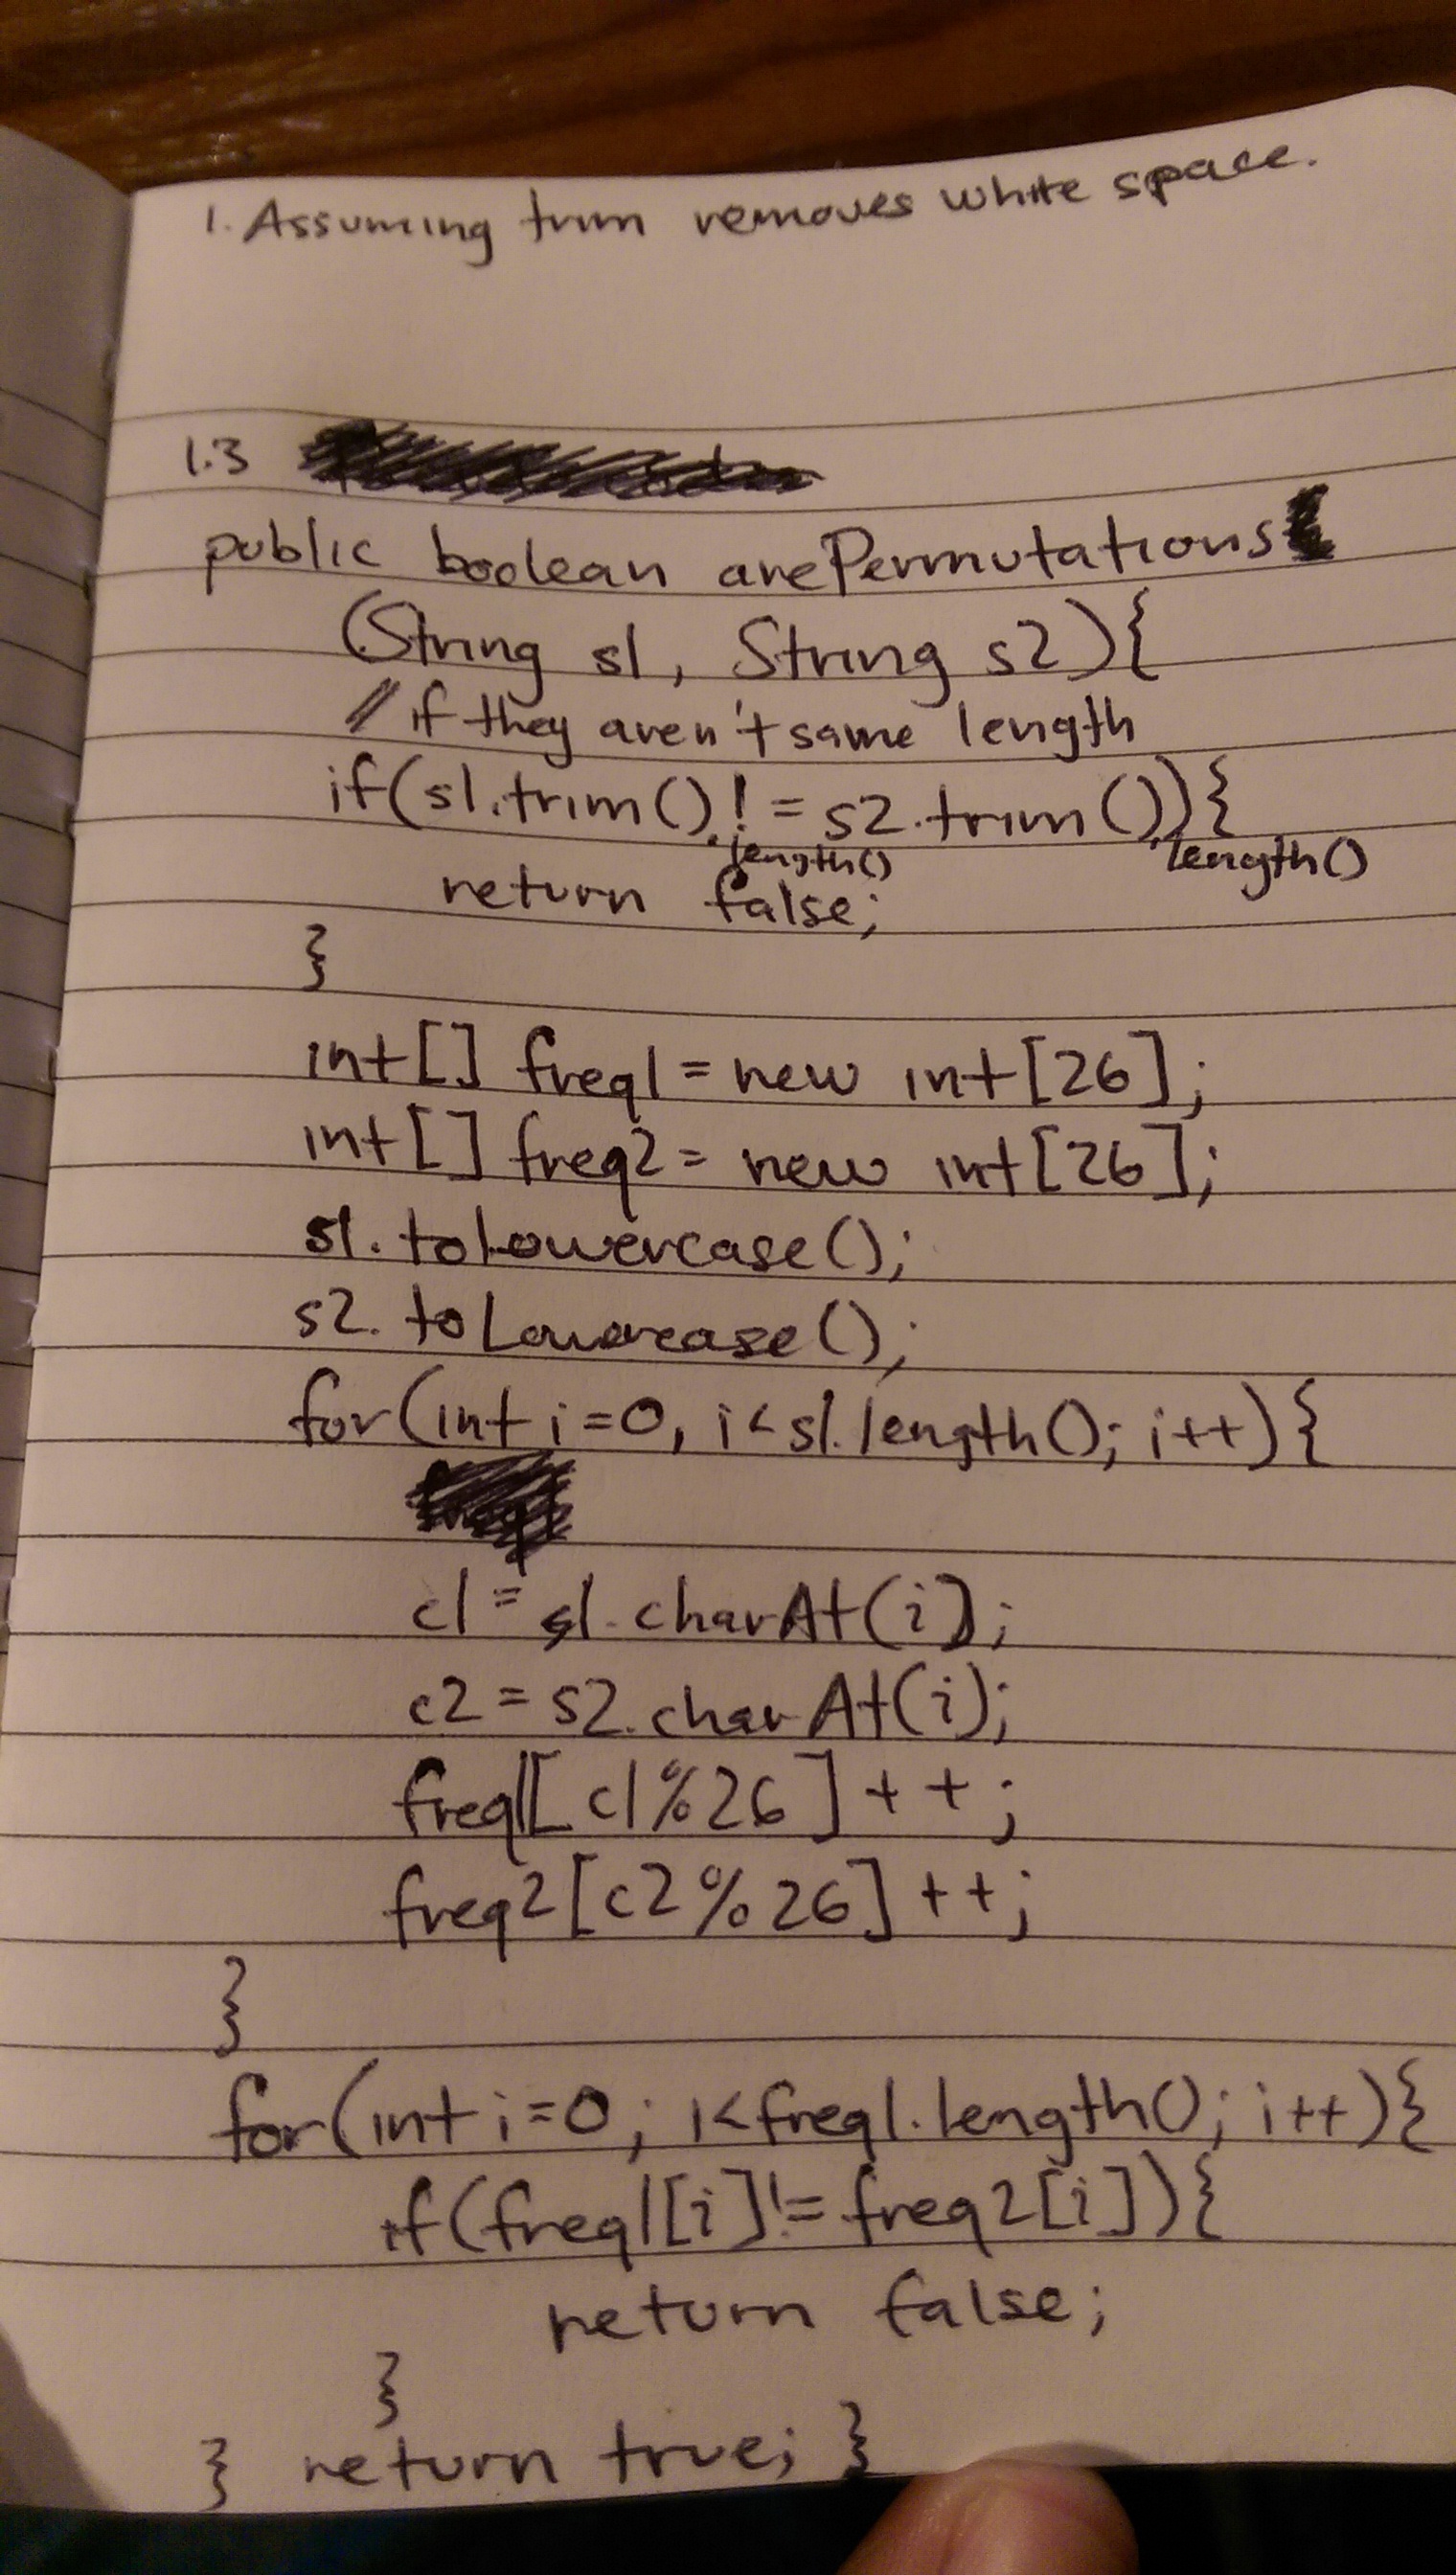 1. Assuming trim removes white space.
1.3
public boolean arePermutations
(String s1, String s2){
// if they aren't same length
if(s1.trim().length() != s2.trim().length()){
return false;
}
int[] freq1 = new int[26];
int[] freq2 = new int[26];
s1.toLowercase();
s2.toLowercase();
for(int i=0, i<s1.length(); i++){
c1 = s1.charAt(i);
c2 = s2.charAt(i);
freq1[c1%26]++;
freq2[c2%26]++;
}
for(int i=0; i<freq1.length(); i++){
if(freq1[i]!=freq2[i]){
return false;
}
} return true; }